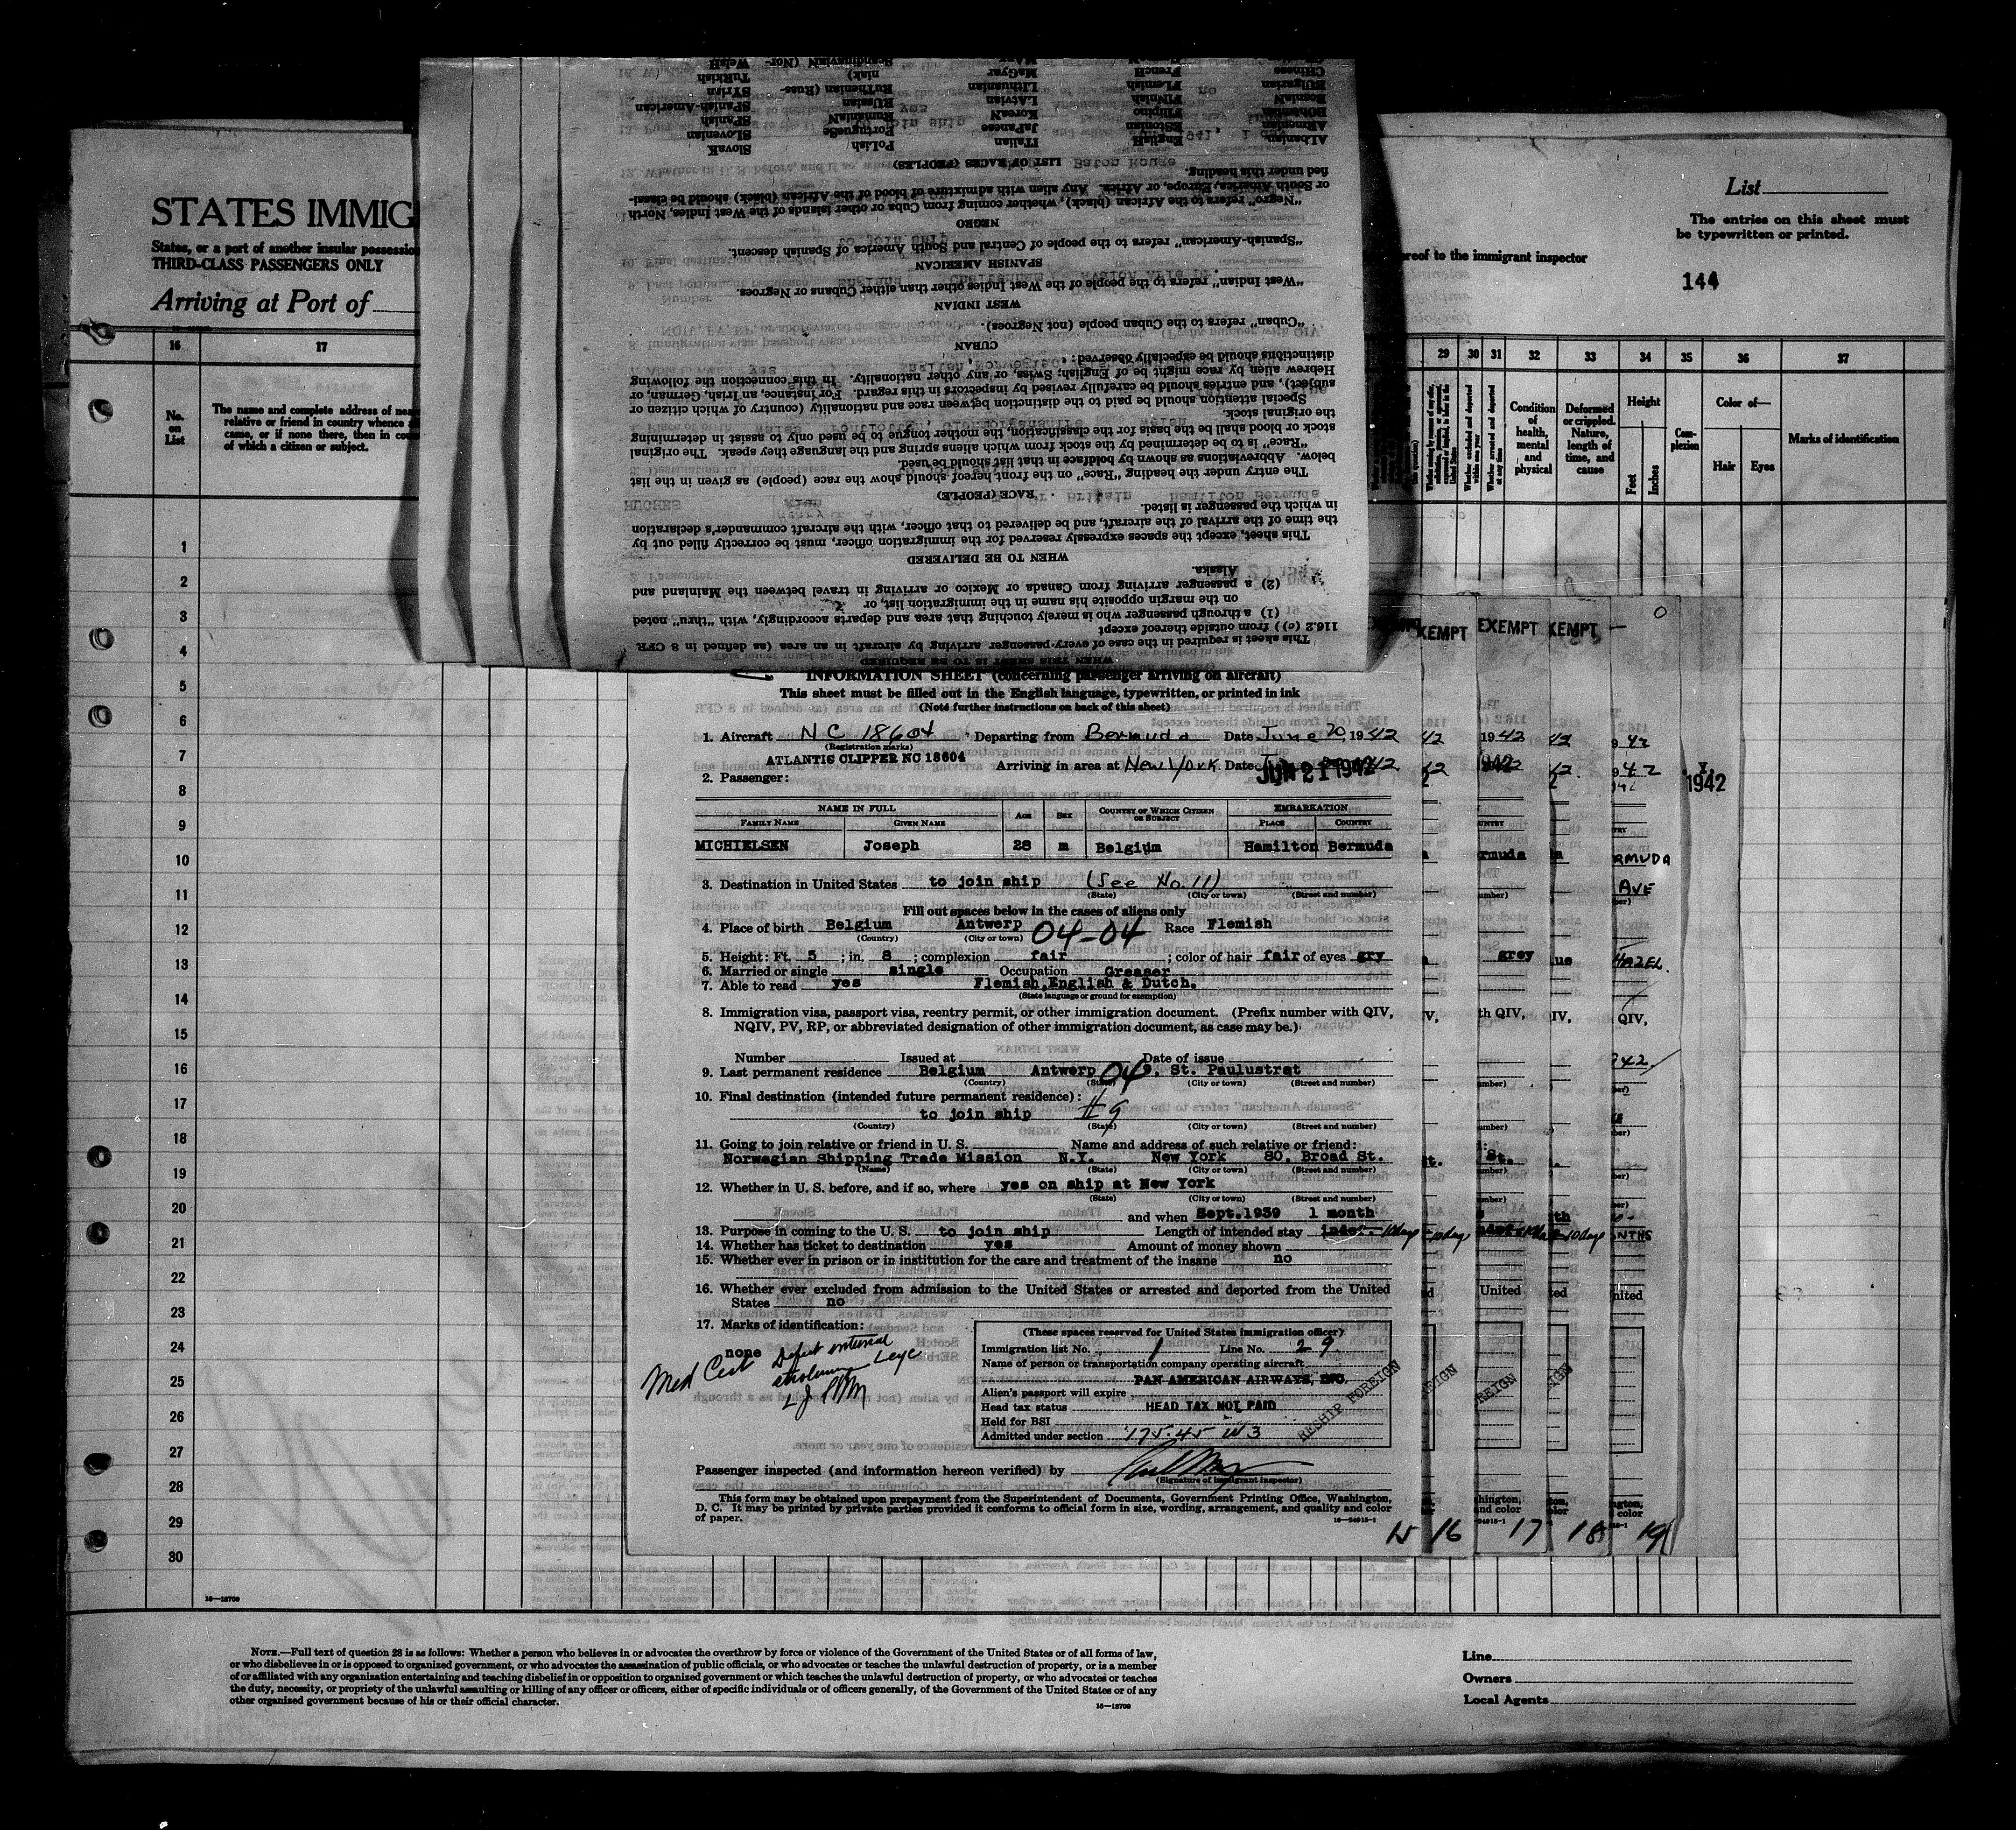 STATES IMMIG
States, or a part of another insular possession
THIRD-CLASS PASSENGERS ONLY
Arriving at Port of
16 17
No. on List
The name and complete address of nea
relative or friend in country whence a
came, or if none there, then in cou
of which a citizen or subject.
1
2
3
4
5
6
7
8
9
10
11
12
13
14
15
16
17
18
19
20
21
22
23
24
25
26
27
28
29
30
16—18709
List
The entries on this sheet must
be typewritten or printed.
ereof to the immigrant inspector
144
29 30 31 32 33 34 35 36 37
Whether excluded and deported within one year
Whether arrested and deported at any time
Condition of health, mental and physical
Deformed or crippled. Nature, length of time, and cause
Height
Feet Inches
Complexion
Color of—
Hair Eyes
Marks of identification
WHEN THIS SHEET IS TO BE REQUIRED
This sheet is required in the case of every passenger arriving by aircraft in an area (as defined in 8 CFR
116.2 (c)) from outside thereof except
(1) a through passenger who is merely touching that area and departs accordingly, with "thru" noted
on the margin opposite his name in the immigration list, or
(2) a passenger arriving from Canada or Mexico or arriving in travel between the Mainland and
Alaska.
WHEN TO BE DELIVERED
This sheet, except the spaces expressly reserved for the immigration officer, must be correctly filled out by
the time of the arrival of the aircraft, and be delivered to that officer, with the aircraft commander's declaration
in which the passenger is listed.
RACE (PEOPLE)
The entry under the heading "Race" on the front hereof should show the race (people) as given in the list
below. Abbreviations as shown by boldface in that list should be used.
"Race" is to be determined by the stock from which aliens spring and the language they speak. The original
stock or blood shall be the basis for the classification, the mother tongue to be used only to assist in determining
the original stock.
Special attention should be paid to the distinction between race and nationality (country of which citizen or
subject), and entries should be carefully revised by inspectors in this regard. For instance, an Irish, German, or
Hebrew alien by race might be of English, Swiss, or any other nationality. In this connection the following
distinctions should be especially observed:
CUBAN
"Cuban" refers to the Cuban people (not Negroes).
WEST INDIAN
"West Indian" refers to the people of the West Indies other than either Cubans or Negroes.
SPANISH AMERICAN
"Spanish-American" refers to the people of Central and South America of Spanish descent.
NEGRO
"Negro" refers to the African (black), whether coming from Cuba or other islands of the West Indies, North
or South America, Europe, or Africa. Any alien with admixture of blood of the African (black) should be classi-
fied under this heading.
LIST OF RACES (PEOPLES)
Albanian EnglisH ITalian PoLish SlovaK
ARmenian EStonian JaPanese PortugueSe SLovenian
BOhemian FIlipino KoreaN RumaniaN SPanish
BosniaN FINnish LAtvian RUssian SPanish-American
BUlgarian FLemish LIthuanian RuThenian (Russ- SYrian
CHinese FrencH MaGyar niak) TurKish
Scandinavian (Nor- WelsH
INFORMATION SHEET (concerning passenger arriving on aircraft)
This sheet must be filled out in the English language, typewritten, or printed in ink
(Note further instructions on back of this sheet)
1. Aircraft NC 18604 Departing from Bermuda Date June 20, 1942
(Registration marks)
ATLANTIC CLIPPER NC 18604
Arriving in area at New York Date JUN 21 1942
2. Passenger:
NAME IN FULL AGE SEX COUNTRY OF WHICH CITIZEN OR SUBJECT EMBARKATION
FAMILY NAME GIVEN NAME PLACE COUNTRY
MICHIELSEN Joseph 28 m Belgium Hamilton Bermuda
3. Destination in United States to join ship (See No. 11)
(State) (City or town) (Street and number)
Fill out spaces below in the cases of aliens only
4. Place of birth Belgium Antwerp 04-04 Race Flemish
(Country) (City or town)
5. Height: Ft. 5 ; in. 8 ; complexion fair ; color of hair fair of eyes gry
6. Married or single single Occupation Greaser
7. Able to read yes Flemish, English & Dutch.
(State language or ground for exemption)
8. Immigration visa, passport visa, reentry permit, or other immigration document. (Prefix number with QIV,
NQIV, PV, RP, or abbreviated designation of other immigration document, as case may be.)
Number Issued at Date of issue
9. Last permanent residence Belgium Antwerp 04 9. St. Paulustrat
(Country) (State) (City or town) (Street and number)
10. Final destination (intended future permanent residence):
to join ship #9
(Country) (State) (City or town) (Street and number)
11. Going to join relative or friend in U. S. Name and address of such relative or friend:
Norwegian Shipping Trade Mission N.Y. New York 80. Broad St.
(Name) (State) (City or town) (Street and number)
12. Whether in U. S. before, and if so, where yes on ship at New York
(State) (City or town) (Street and number)
and when Sept.1939 1 month
13. Purpose in coming to the U. S. to join ship Length of intended stay indef.
14. Whether has ticket to destination yes Amount of money shown
15. Whether ever in prison or in institution for the care and treatment of the insane no
16. Whether ever excluded from admission to the United States or arrested and deported from the United
States no
17. Marks of identification:
none
Med Cert
(These spaces reserved for United States immigration officer)
Immigration list No. 1 Line No. 29
Name of person or transportation company operating aircraft
PAN AMERICAN AIRWAYS, INC.
Alien's passport will expire
Head tax status HEAD TAX NOT PAID
Held for BSI
Admitted under section 175.45 W3
RESHIP FOREIGN
Passenger inspected (and information hereon verified) by
(Signature of immigrant inspector)
This form may be obtained upon prepayment from the Superintendent of Documents, Government Printing Office, Washington,
D. C. It may be printed by private parties provided it conforms to official form in size, wording, arrangement, and quality and color
of paper.
16—24915-1
EXEMPT EXEMPT
1942
RMUDA
AVE
grey HAZEL
15 16 17 18 19
NOTE.—Full text of question 28 is as follows: Whether a person who believes in or advocates the overthrow by force or violence of the Government of the United States or of all forms of law,
or who disbelieves in or is opposed to organized government, or who advocates the assassination of public officials, or who advocates or teaches the unlawful destruction of property, or is a member
of or affiliated with any organization entertaining and teaching disbelief in or opposition to organized government or which teaches the unlawful destruction of property, or who advocates or teaches
the duty, necessity, or propriety of the unlawful assaulting or killing of any officer or officers, either of specific individuals or of officers generally, of the Government of the United States or of any
other organized government because of his or their official character.
16—18709
Line
Owners
Local Agents